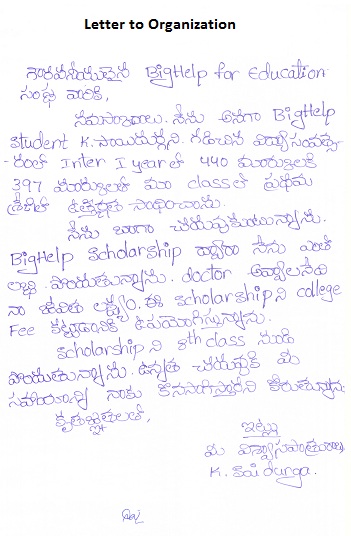 Letter to Organization
గౌరవనీయులైన BigHelp for Education
సంస్థ వారికి,
నమస్కారాలు. నేను అనగా BigHelp
student K. సాయిదుర్గని. గడిచిన విద్యాసంవత్స
-రంలో Inter I year లో 440 మార్కులకి
397 మార్కులతో మా class లో ప్రథమ
శ్రేణిలో ఉత్తీర్ణత సాధించాను.
నేను బాగా చదువుకుంటున్నాను.
BigHelp scholarship ద్వారా నేను ఎంతో
లబ్ధి పొందుతున్నాను. doctor అవ్వాలనేది
నా జీవిత లక్ష్యం. ఈ scholarship ని college
Fee కట్టడానికి ఉపయోగిస్తున్నాను.
scholarship ని 8th class నుండి
పొందుతున్నాను. ఉన్నత చదువుకి మీ
సహాయాన్ని నాకు కొనసాగిస్తారని కోరుతున్నాను.
కృతజ్ఞతలతో,
ఇట్లు
మీ విశ్వాసపాత్రురాలు
K. సాయి durga.